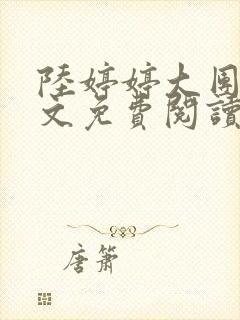 陸婷婷大團
文免費閱讀
唐簫